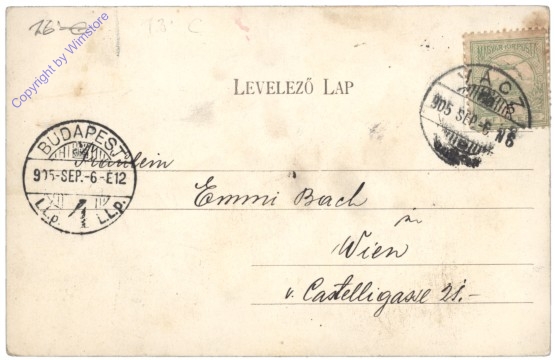 26-
13.- C
Copyright by Winstore
LEVELEZŐ LAP
MAGYAR KIR. POSTA
VÁCZ
905 SEP.-6 N6
BUDAPEST
905-SEP.-6-É12
L.L.p. 1 L.L.p.
Fräulein
Emmi Bach
in
Wien
v. Castelligasse 21.-